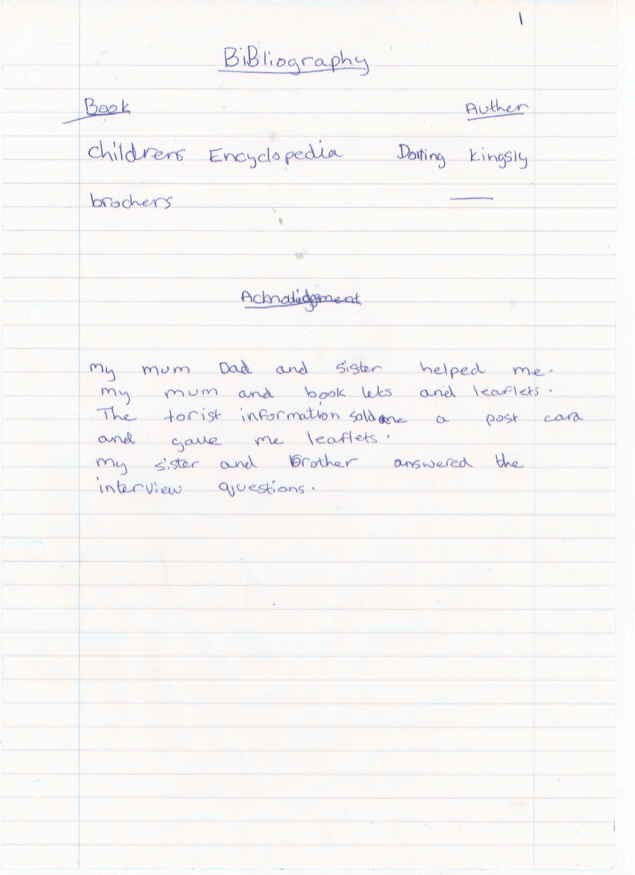 1
BiBliography
Book Auther
Childrens Encyclopedia Dorling Kingsly
brochers —
Acknalidgment
my mum Dad and sister helped me.
my mum and book lets and leaflets.
The torist information sold me a post card
and gave me leaflets.
my sister and Brother answered the
interview questions.